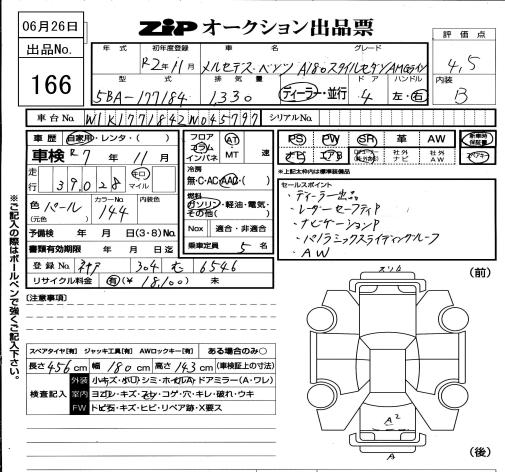 06月26日
ZIP オークション出品票
出品No.
166
年式 初年度登録 車名 グレード
R2年11月 メルセデス・ベンツ A180スタイルセダンAMGライン
評価点
4,5
型式 排気量 ドア ハンドル
5BA-177184 1,330 ディーラー・並行 4 左・右
内装
B
車台No. W1K1771842W045797 シリアルNo.
車歴 自家用・レンタ・( )
車検 R7年11月
走行 39,028 キロ マイル
色(元色) パール カラーNo. 144 内装色
予備検 年 月 日(3・8)No.
書類有効期限 年 月 日迄
登録No. 神戸 304 む 6546
リサイクル料金 有(¥18,100) 未
フロア コラム インパネ AT MT 速
冷房 無・C・AC・AAC・( )
燃料 ガソリン・軽油・電気・その他( )
Nox 適合・非適合
乗車定員 5 名
PS PW SR 革 AW 新車時保証書
ナビ エアB 社外ナビ 社外AW
*上記太枠内は標準装備品
セールスポイント
・ディーラー出品
・レーダーセーフティP
・ナビゲーションP
・パノラミックスライディングルーフ
・AW
※ご記入の際はボールペンで強くご記入下さい。
[注意事項]
スペアタイヤ[有] ジャッキ工具[有] AWロックキー[有] ある場合のみ○
長さ456cm 幅180cm 高さ143cm(車検証上の寸法)
検査記入
外装 小キズ・小凹・シミ・ホイルA・ドアミラー(A・ワレ)
室内 ヨゴレ・キズ・スレ・コゲ・穴・キレ・破れ・ウキ
FW トビ石・キズ・ヒビ・リペア跡・X要ス
(前)
スリ山
A2
A
(後)